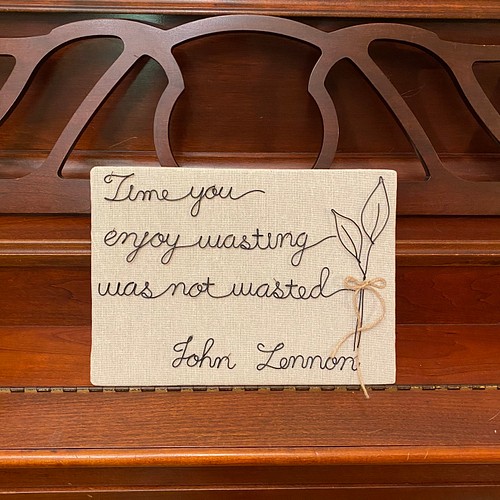 Time you
enjoy wasting
was not wasted
John Lennon